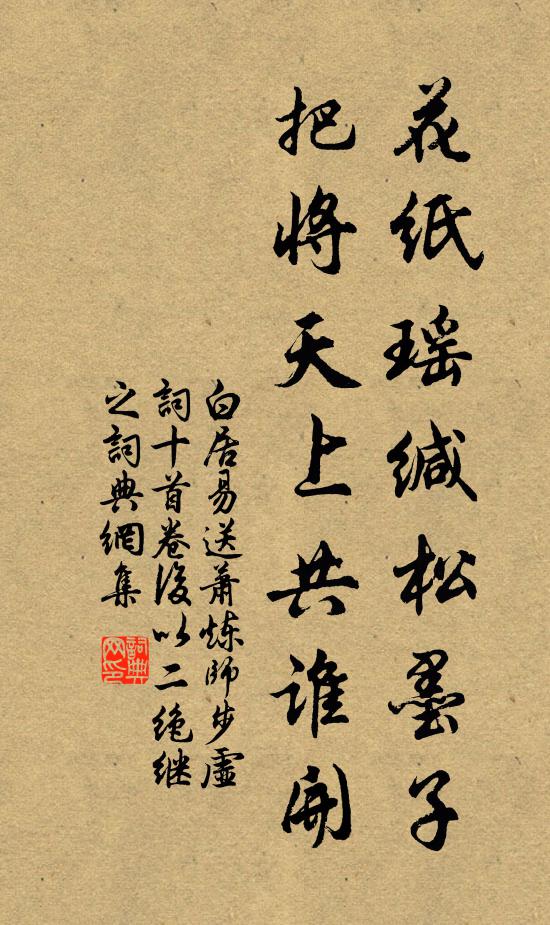 花纸瑶缄松墨子
把将天上共谁开
白居易送萧炼师步虚
詞十首卷後以二绝继
之詞典網集
詞典
网印